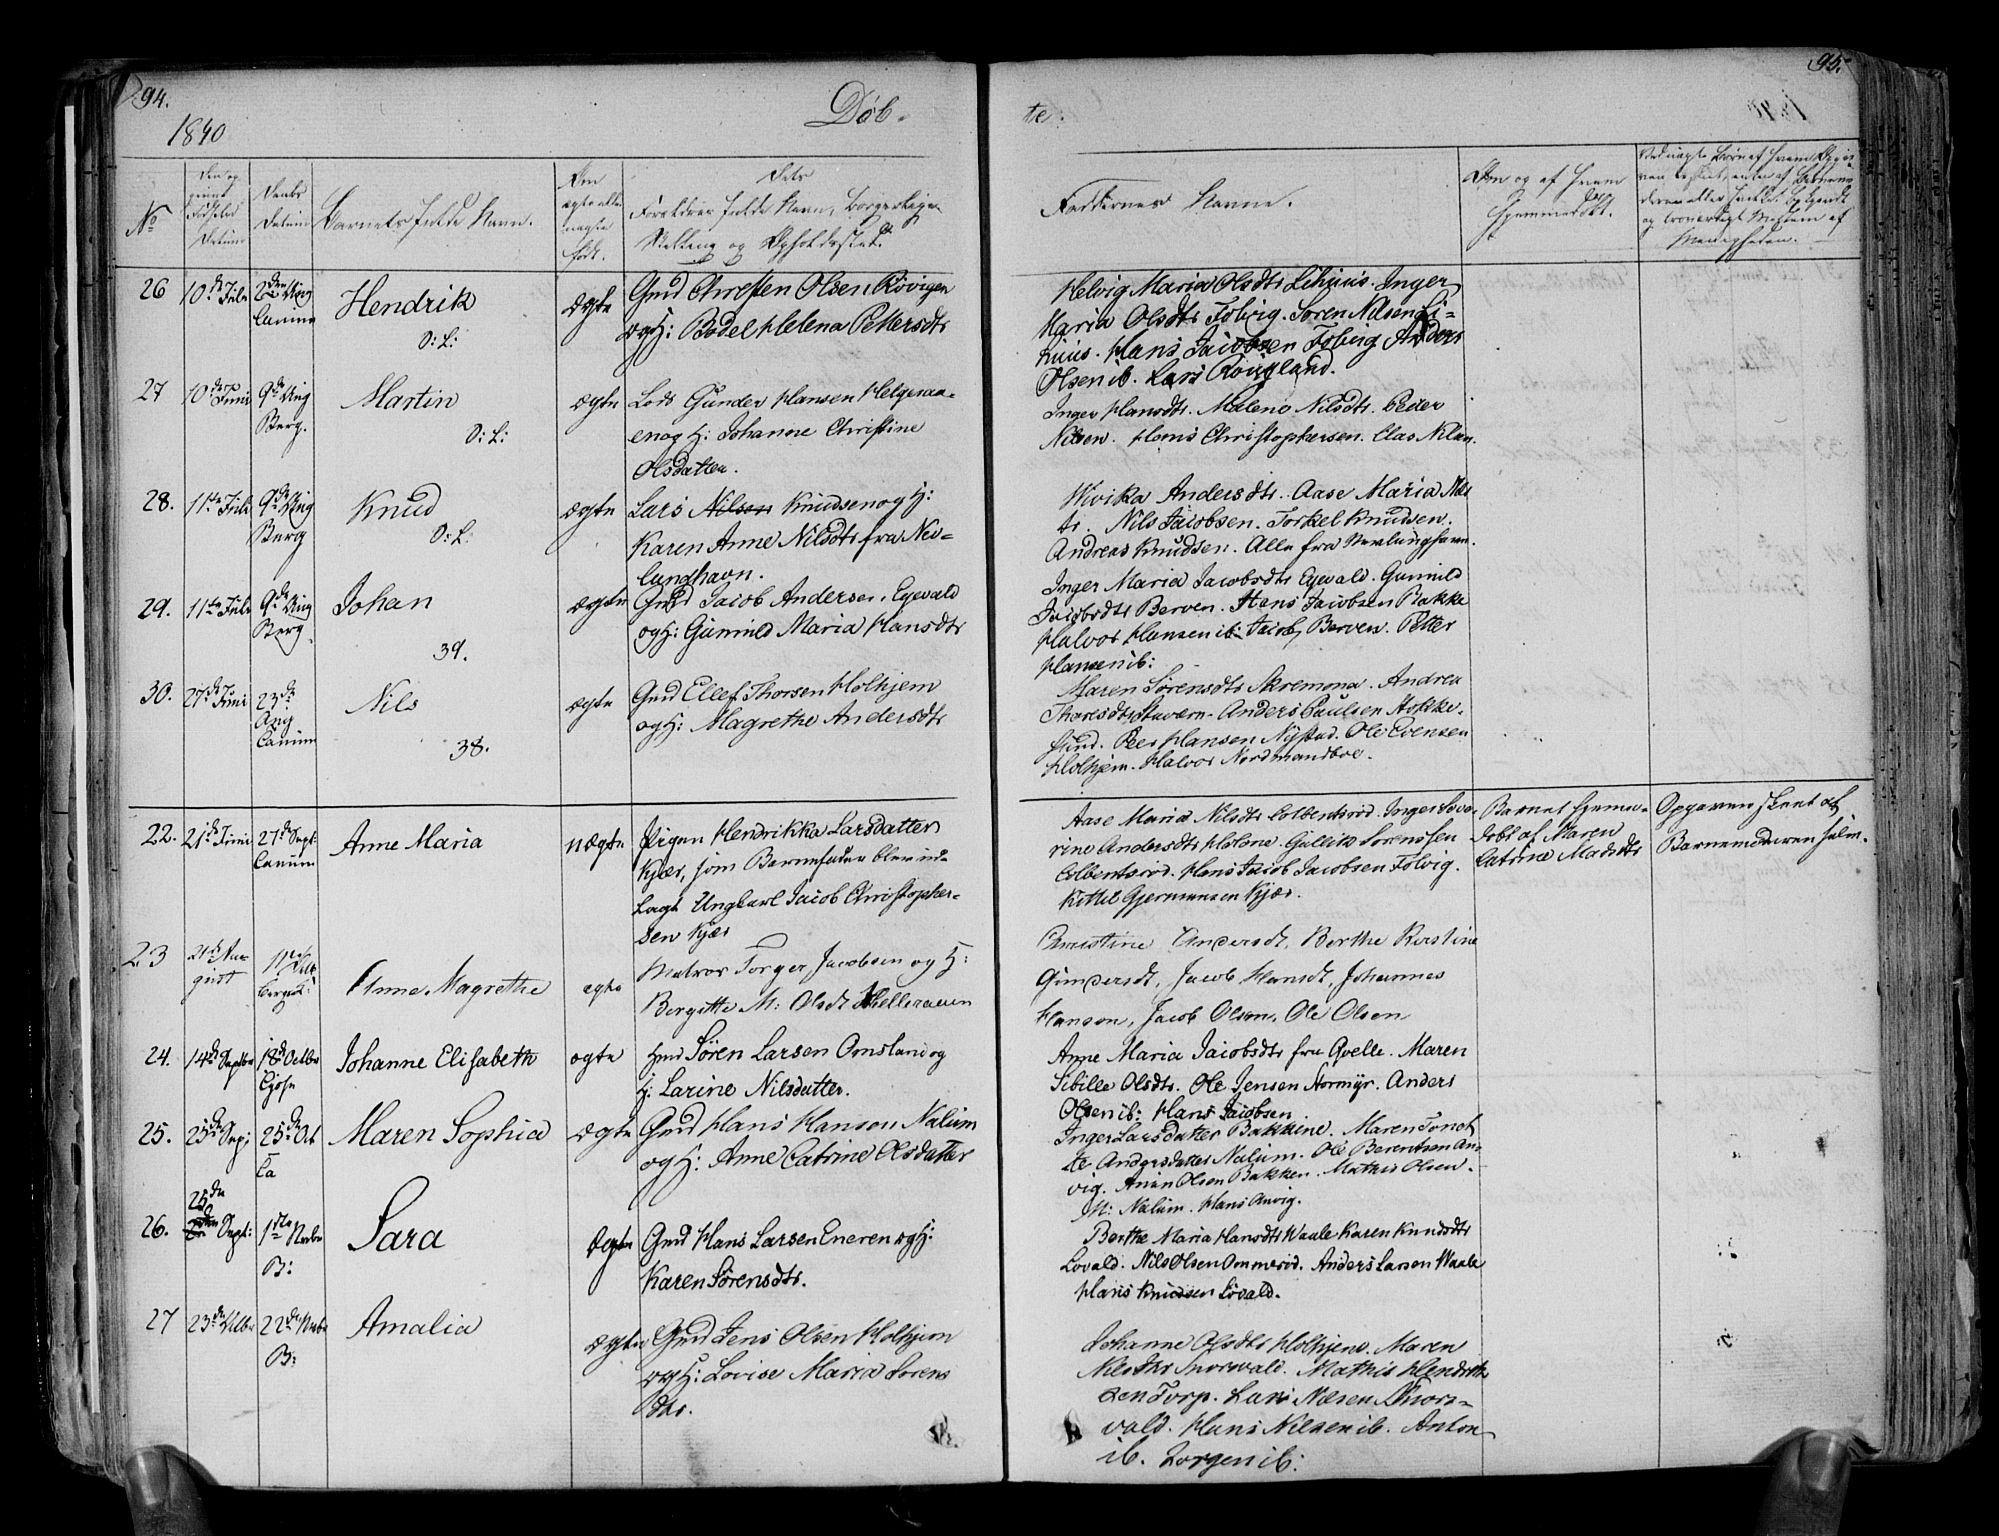 94.
1840
Døb-
No
Den og
Fødsels
Datum
Daabs
Datum
Barnets fulde Navn.
Om
ægte eller
uægte
født.
Dets
Forældres fulde Navn, Borgerlige
Stilling og Opholdssted.
26
10de Juli
2den Aug
Canum
Hendrik
D: L:
ægte
Gmd Christen Olsen Rövigen
og H: Bodel Helena Pettersdtr
27
10de Juni
9de Aug
Berg.
Martin
D: L:
ægte
Lods Gunder Hansen Helgeraa-
en og H: Johanne Christine
Olsdatter.
28.
11te Juli
9de Aug
Berg
Knud
D: L.
ægte
Lars Nilsen Knudsen og H:
Karen Anne Nilsdtr fra Nev-
lunghavn.
29.
11te Juli
9de Aug
Berg.
Johan
39.
ægte
Gmd Jacob Andersen Egevald
og H: Gunnild Maria Hansdtr
30.
27de Juni
23de
Aug
Canum
Nils
38.
ægte
Gmd Ellef Thorsen Holhjem
og H: Magrethe Andersdtr
22.
21de Juni
27de Sept:
Canum
Anne Maria
uægte
Pigen Hendrikka Larsdatter
Kjær, som Barnefader blev ud-
lagt Ungkarl Jacob Christopher-
sen Kjær
23
21de Au-
gust
Anne Magrethe
ægte
Matros Torger Jacobsen og H:
Bergitte M: Olsdt Helleraaen
24.
14de Septbr
18de Octbr
Johanne Elisabeth
ægte
Gmd Søren Larsen Omsland og
H: Larine Nilsdatter.
25.
25de Sept
25de Oct
Ca
Maren Sophia
ægte
Gmd Hans Hansen Nalum
og H: Anne Catrine Olsdatter
26.
25de
Sept:
1ste Novbr
B:
Sara
ægte
Gmd Hans Larsen Eneren og H:
Karen Sørensdtr.
27
23de
22de Novbr
B:
Amalia
ægte
Gmd Jens Olsen Holhjem
og H: Lovise Maria Sørens
dtr.
95.
te.
Faddernes Navne.
Om og af hvem
hjemmedøbt.
Ved uægte Børn af hvem Opgi-
og troværdigt Medlem af
Menigheden.
Helvig Maria Olsdtr Lihuus. Inger
Maria Olsdtr Folvig. Søren Nilsen Li-
huus. Hans Jacobsen Folvig Anders
Olsen ib. Lars Rövigland.
Inger Hansdtr. Malene Nilsdtr. Peder
Nilsen. Hans Christophersen. Clas Nilsen.
Wivika Andersdtr. Aase Maria Nils
dr. Nils Jacobsen. Torkel Knudsen.
Andreas Knudsen. Alle fra Nevlunghavn.
Inger Maria Jacobsdtr Egevald. Gunnild
Jacobsdtr Berven. Hans Jacobsen Bakke
Halvor Hansen ib. Jacob Berven. Petter
Hansen ib:
Maren Sørensdtr Skremona. Andrea
Thorsdtr Stavern. Anders Paulsen Hokke-
stind. Peer Hansen Nystad. Ole Evensen
Holhjem. Halvor Nordmandboe.
Aase Maria Nilsdtr Colbentsrød. Inger Seve-
rine Andersdtr Holene. Gullik Sorenssen
Colbentsrød. Hans Jacob Jacobsen Folvig.
Kittil Gjermunsen Kjær.
Barnet hjemme-
døbt af Maren
Catrine Madsdtr
Opgaven skeet af
Barnemoderen selv.
Christine Andersdt, Berthe Kirstine
Gundersdt, Jacob Hansdt, Johannes
Hansen, Jacob Olsen, Ole Olsen
Anne Maria Jacobsdtr fra Qvelle. Maren
Sibille Olsdtr. Ole Jensen Stormyr. Anders
Olsen ib: Hans Jacobsen
Inger Larsdatter Bakkene. Maren Tonet
te Andersdatter Nalum. Ole Berentsen An-
vig. Anan Olsen Bakken. Mathis Olsen
M: Nalum. Hans Anvig.
Berthe Maria Hansdtr Waale Karen Knudsdtr
Lovald. Nils Olsen Ommerød. Anders Larsen Waale
Hans Knudsen Lovald.
Johanne Olsdtr Holhjem. Maren
Nilsdtr Snorvald. Mathis Hendrik
sen Torp. Lars Næsen Snors-
vald. Hans Nilsen ib. Anton
ib. Jørgen ib: